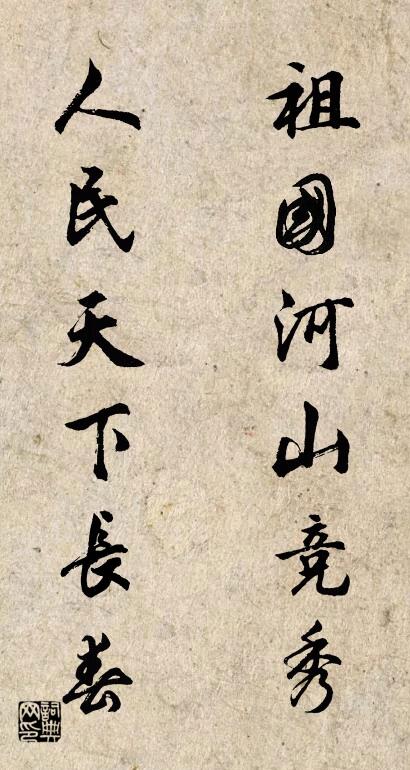 祖國河山竞秀
人民天下長春
詞典网印